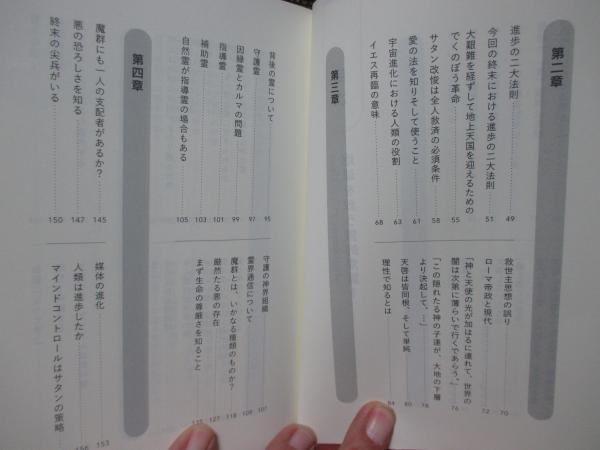 第二章
進歩の二大法則 49
今回の終末における進歩の二大法則 51
大艱難を経ずして地上天国を迎えるための
でくのぼう革命 55
サタン改悛は全人救済の必須条件 58
愛の法を知りそして使うこと 61
宇宙進化における人類の役割 63
イエス再臨の意味 68
救世主思想の誤り 70
ローマ帝政と現代 72
「神と天使の光が加はるに連れて、世界の
闇は次第に薄らいで行くであらう。」 76
「この隠れたる神の子達が、大地の下層
より決起して、…」 78
天啓は皆同根、そして単純 80
理性で知るとは 84
第三章
背後の霊について 95
守護霊 97
因縁霊とカルマの問題 99
指導霊 101
補助霊 103
自然霊が指導霊の場合もある 105
守護の神界組織 107
霊界通信について 109
魔群とは、いかなる種類のものか? 118
厳然たる悪の存在 127
まず生命の尊厳さを知ること 135
第四章
魔群にも一人の支配者があるか? 145
悪の恐ろしさを知る 147
終末の尖兵がいる 150
媒体の進化 153
人類は進歩したか 156
マインドコントロールはサタンの策略